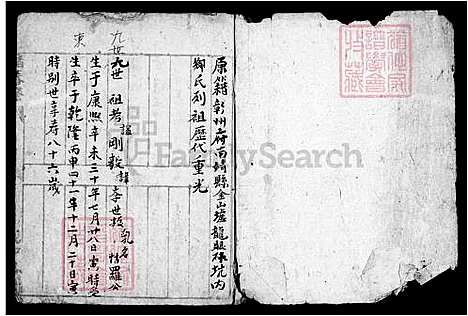 原籍彰州府南靖縣金山墟龍㽃張坑內
鄉氏列祖歷代重光
九世
九世 祖考 諡剛毅 諱李世 乳名 惜羅公
生于康熙辛未三十年七月廿八日寅時
生卒于乾隆丙申四十一年十二月二十日寅
時別世享壽八十六歲
東
FamilySearch